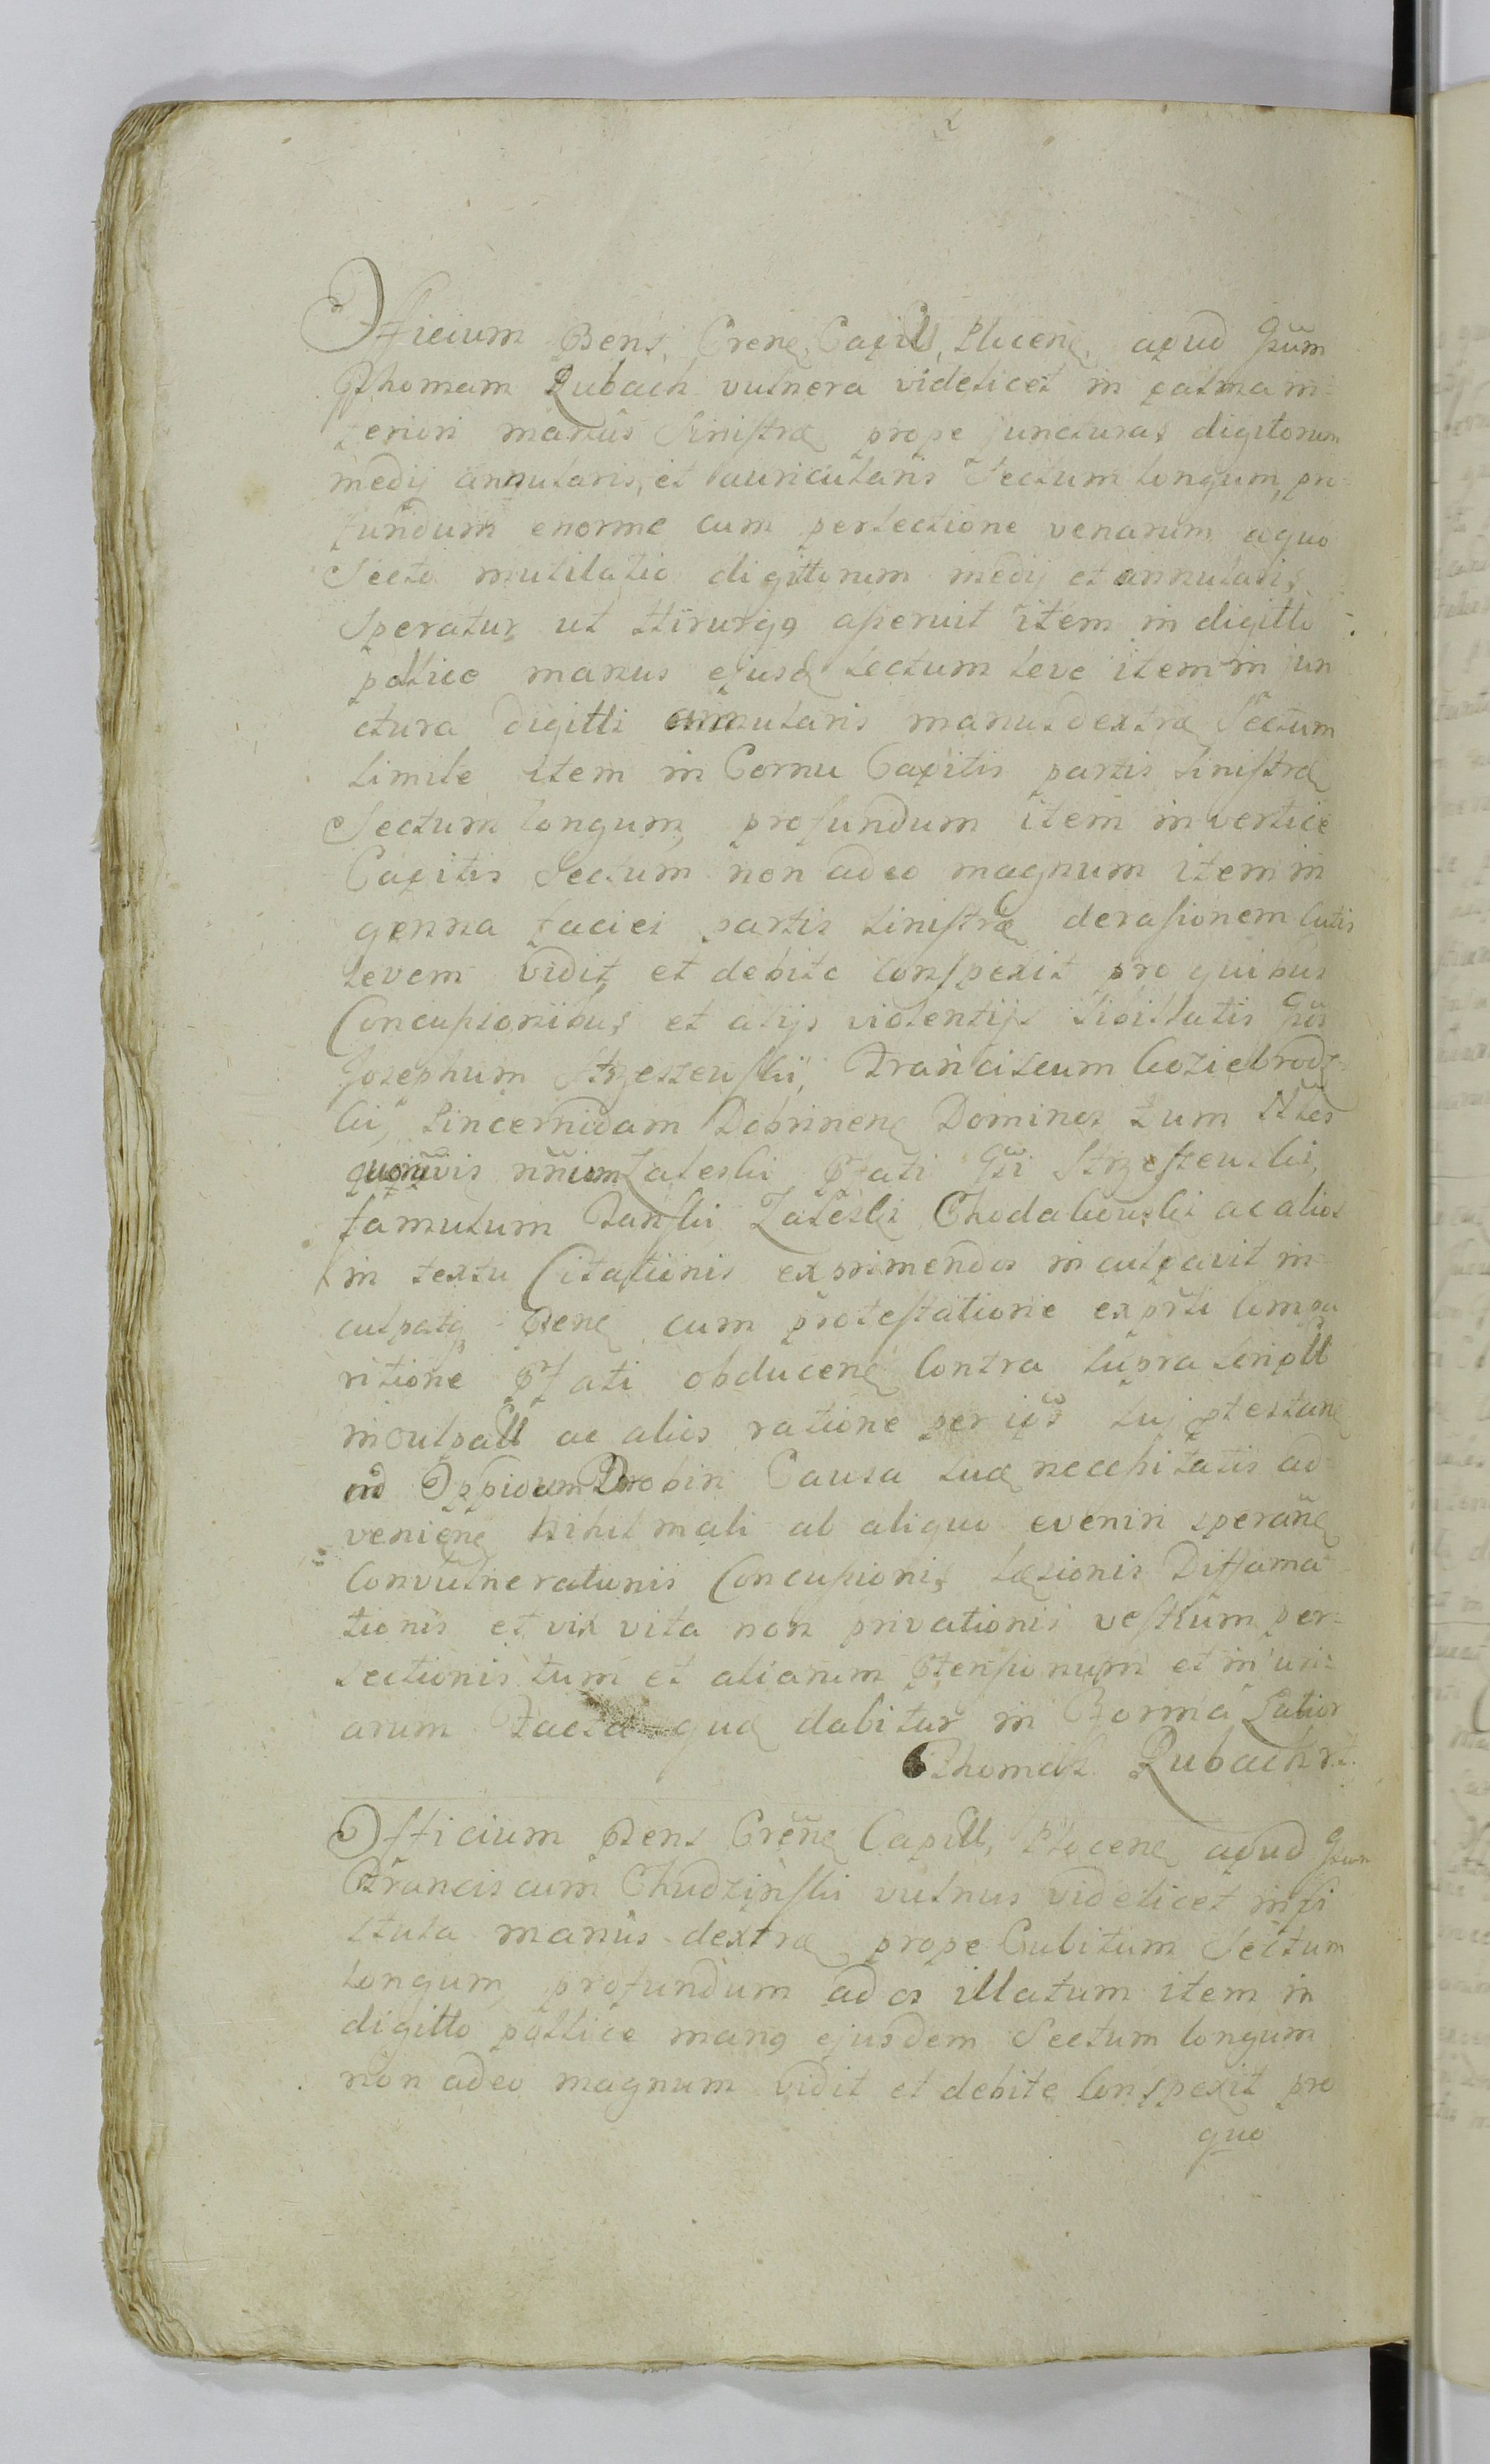 Officium Pens, Crenę Capill, Plocenę, apud Gsum
Thomam Rubach vulnera videlicet in palma in=
teriori manus sinistræ prope juncturas digitorum
medij annularis, et auricularis Sectum longum, pro=
fundum enorme cum persectione venarum, a quo
Secto mutilatio digittorum medij et annularis
Speratur, ut Chirurgo aperuit item in digitto
pollice manus ejusd sectum leve item in jun
ctura digitti annularis manus dextræ Sectum
simile item in Cornu Capitis partis sinistræ
Sectum longum, profundum item in vertice
Capitis Sectum non adeo magnum item in
genna faciei partis sinistræ derasionem Cutis
levem vidit, et debite conspexit pro quibus
Concussionibus et alijs violentijs sibi Gsos
Josephum Franciscum Koziebrodz=
ki, Pincernidam Dobrinenę Dominos tum
Zaleski Pfati Gsi
famulum Zaleski Chodakowski ac alios
in textu Citationis exprimendos inculpavit in
culpatq Penę cum protestatione ex prti Compa
ritione Pfati obducenę Contra supra script
inculpatt ac alios ratione per ijs suj ptestanę
ad Oppidum Drobin Causa suæ necessitatis ad=
venienę Nihil mali ab aliquo eveniri speranę
Convulnerationis Concussionis Læsionis Diffama
tionis et vix vita non privationis vestium per=
sectionis tum et aliarum Ptensionum et injuri=
arum Facta quæ dabitur in Forma Latior
Thomas Rubach
Officium Pens Crenę Capill, Plocenę apud Gsum
Franciscum Chudzinski vulnus videlicet in fi
stula manus dextræ prope Cubitum Sectum
longum profundum ad os illatum item in
digitto pollice mang ejusdem Sectum longum
non adeo magnum vidit et debite Conspexit pro
quo